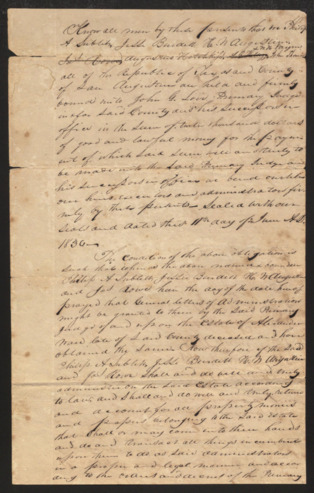 Know all men by these presents that we Philip
A Sublett, Jesse Burdett H. W. Augustine
all of the Republic of Texas and County
of San Augustine are held and firmly
bound unto John G. Love Primary Judge
in & for said County and his Successors in
office in the sum of thousand dollars
of good and lawful money for the payment
of which said sum well and truly to
be made unto the said Primary Judge and
his Successors in office we bind ourselves
our heirs executors and administrators firm
ly by these presents Sealed with our
Seals and dated this 11th day of June A.D.
183
The condition of the above obligation is
such that whereas the above named
Philip A Sublett, Burdett H W Augustine
and Rowe have the day of the date hereof
prayed that General letters of Administration
might be granted to them by the said Primary
Judge of and upon the Estate of
late of said County deceased and have
obtained the same Now therefore if the said
Philip A Sublett, Burdett H. W. Augustine
and Rowe shall and do well and truly
administer on the said Estate according
to law and shall and do well and truly return
and account for all property money
and belonging to the said Estate
that shall or may come into their hands
and do and transact all things incumbent
upon them to do as said administrators
in a proper and legal manner and accor
ding to the orders and decrees of the Primary